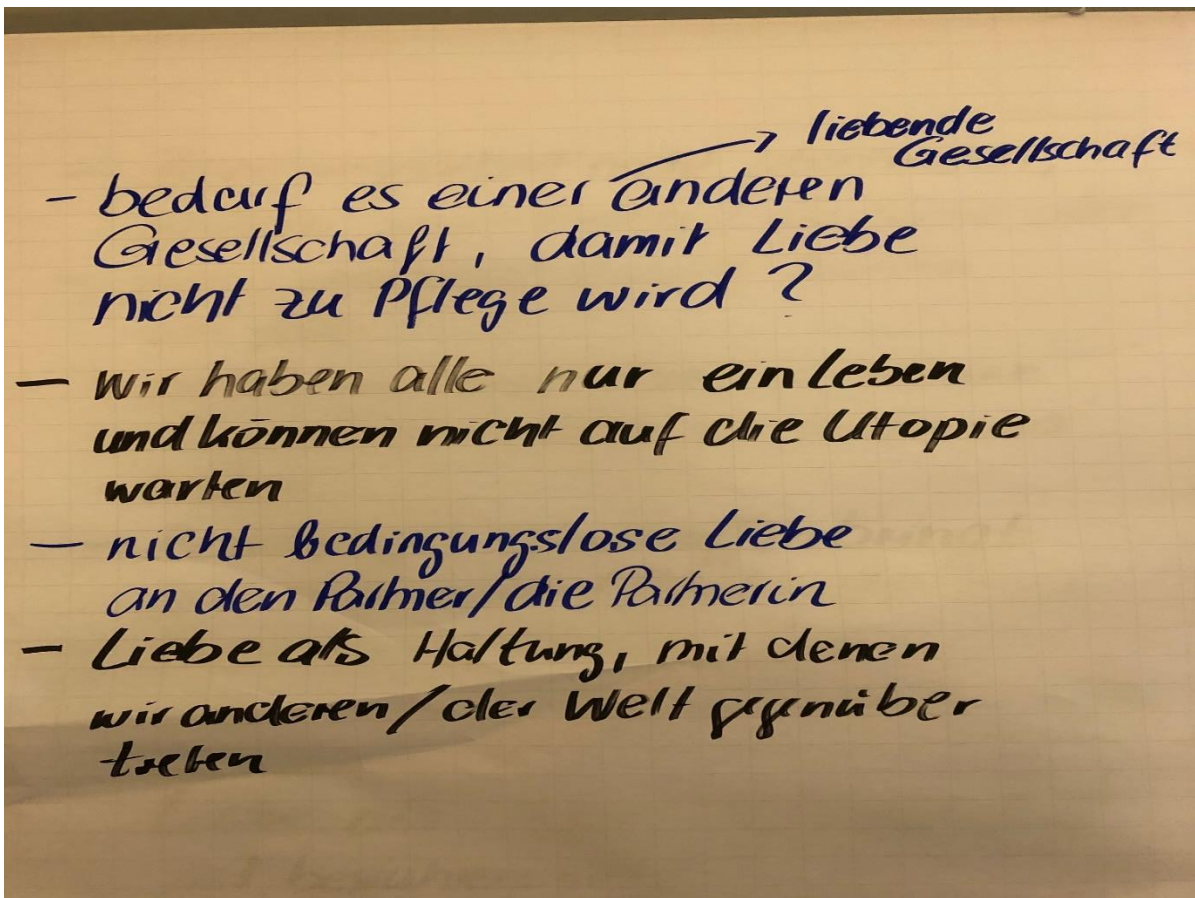 → liebende
Gesellschaft
- bedarf es einer anderen
Gesellschaft, damit Liebe
nicht zu Pflege wird ?
- wir haben alle nur ein Leben
und können nicht auf die Utopie
warten
- nicht Bedingungslose Liebe
an den Partner/die Partnerin
- Liebe als Haltung, mit denen
wir anderen/der Welt gegenüber
treten